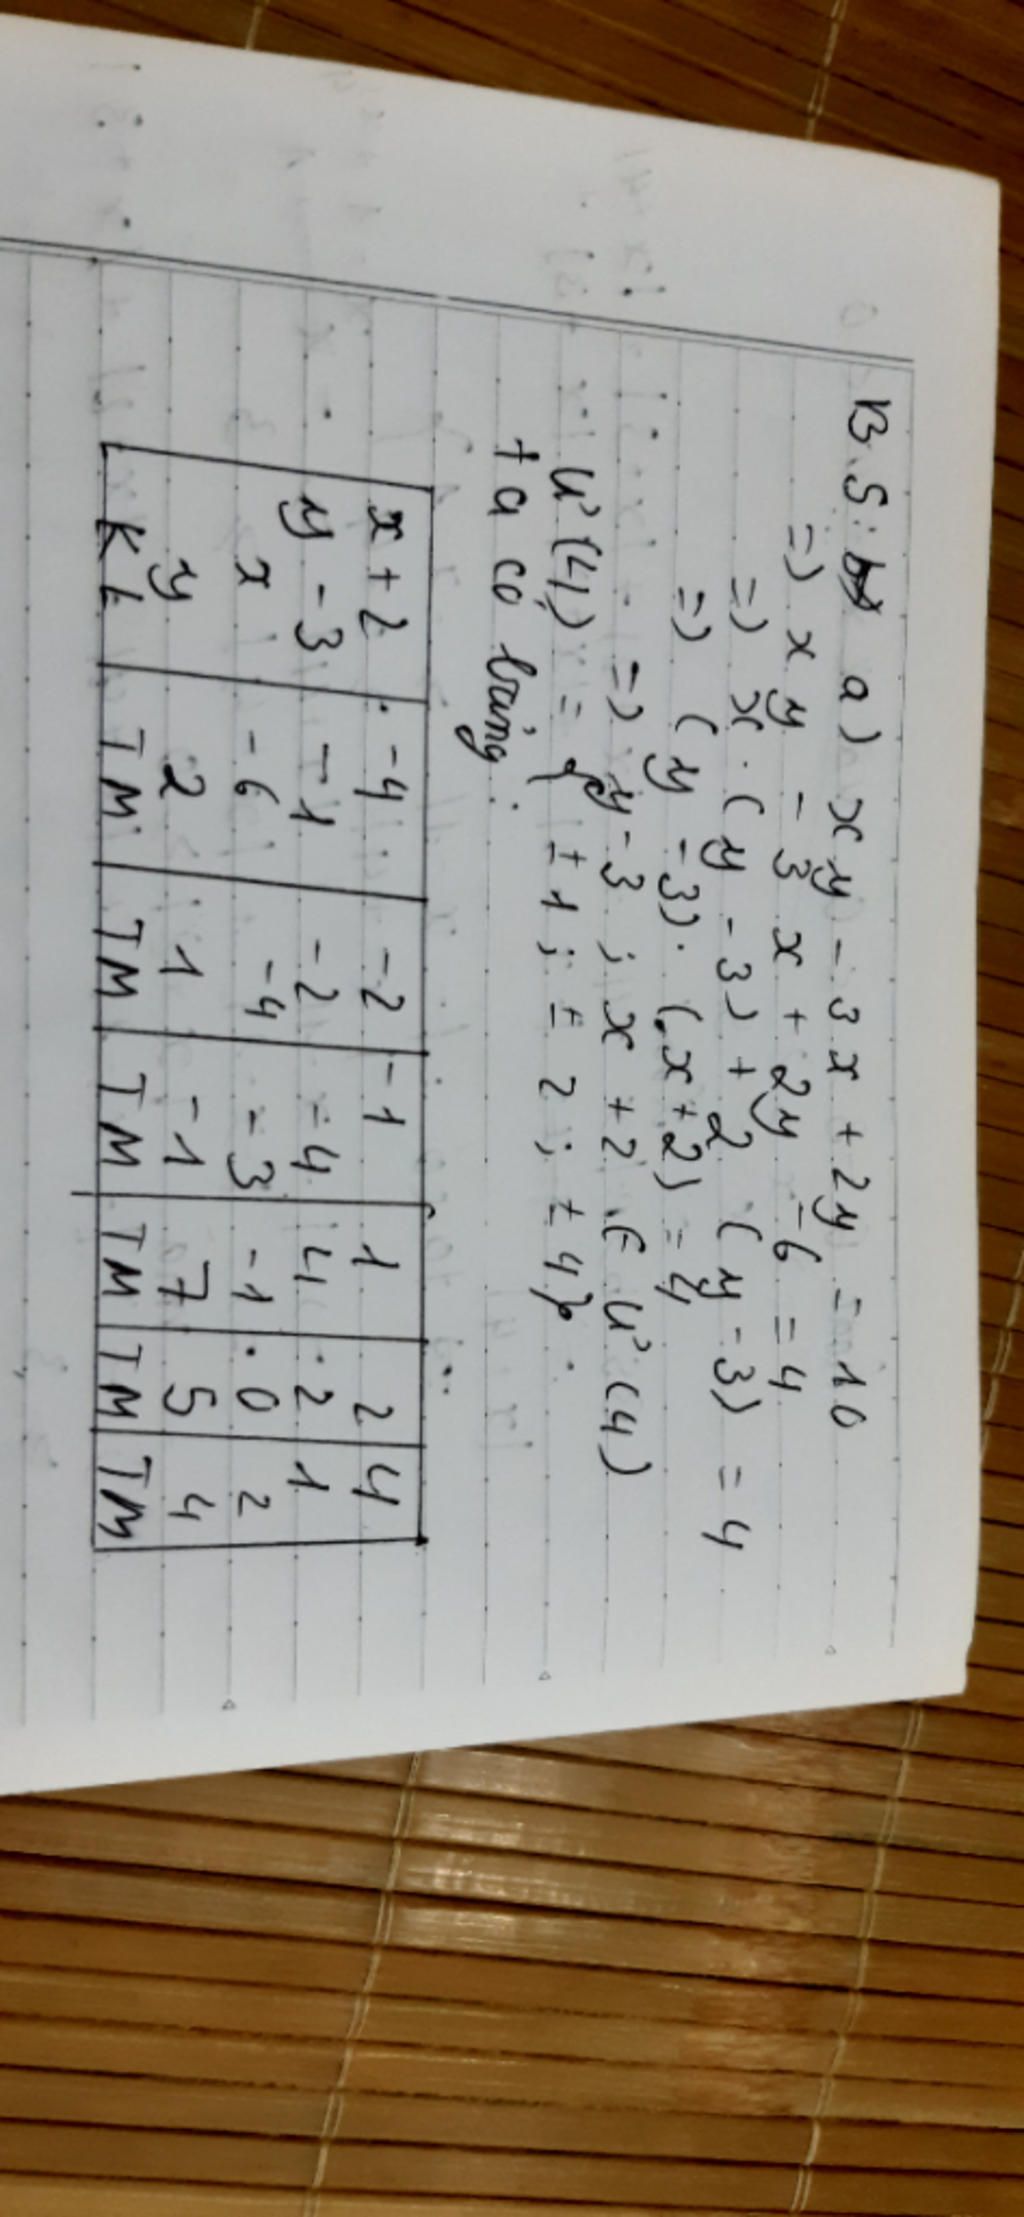 B.5: a) xy - 3x + 2y = 10
=) xy - 3x + 2y - 6 = 4
=) x. (y - 3) + 2 (y - 3) = 4
=) (y - 3). (x + 2) = 4
=) y - 3 ; x + 2 ∈ Ư (4)
Ư (4) = { ± 1; ± 2; ± 4}
ta có bảng:
x + 2 -4 -2 -1 1 2 4
y - 3 -1 -2 -4 4 2 1
x -6 -4 -3 -1 0 2
y 2 1 -1 7 5 4
KL TM TM TM TM TM TM